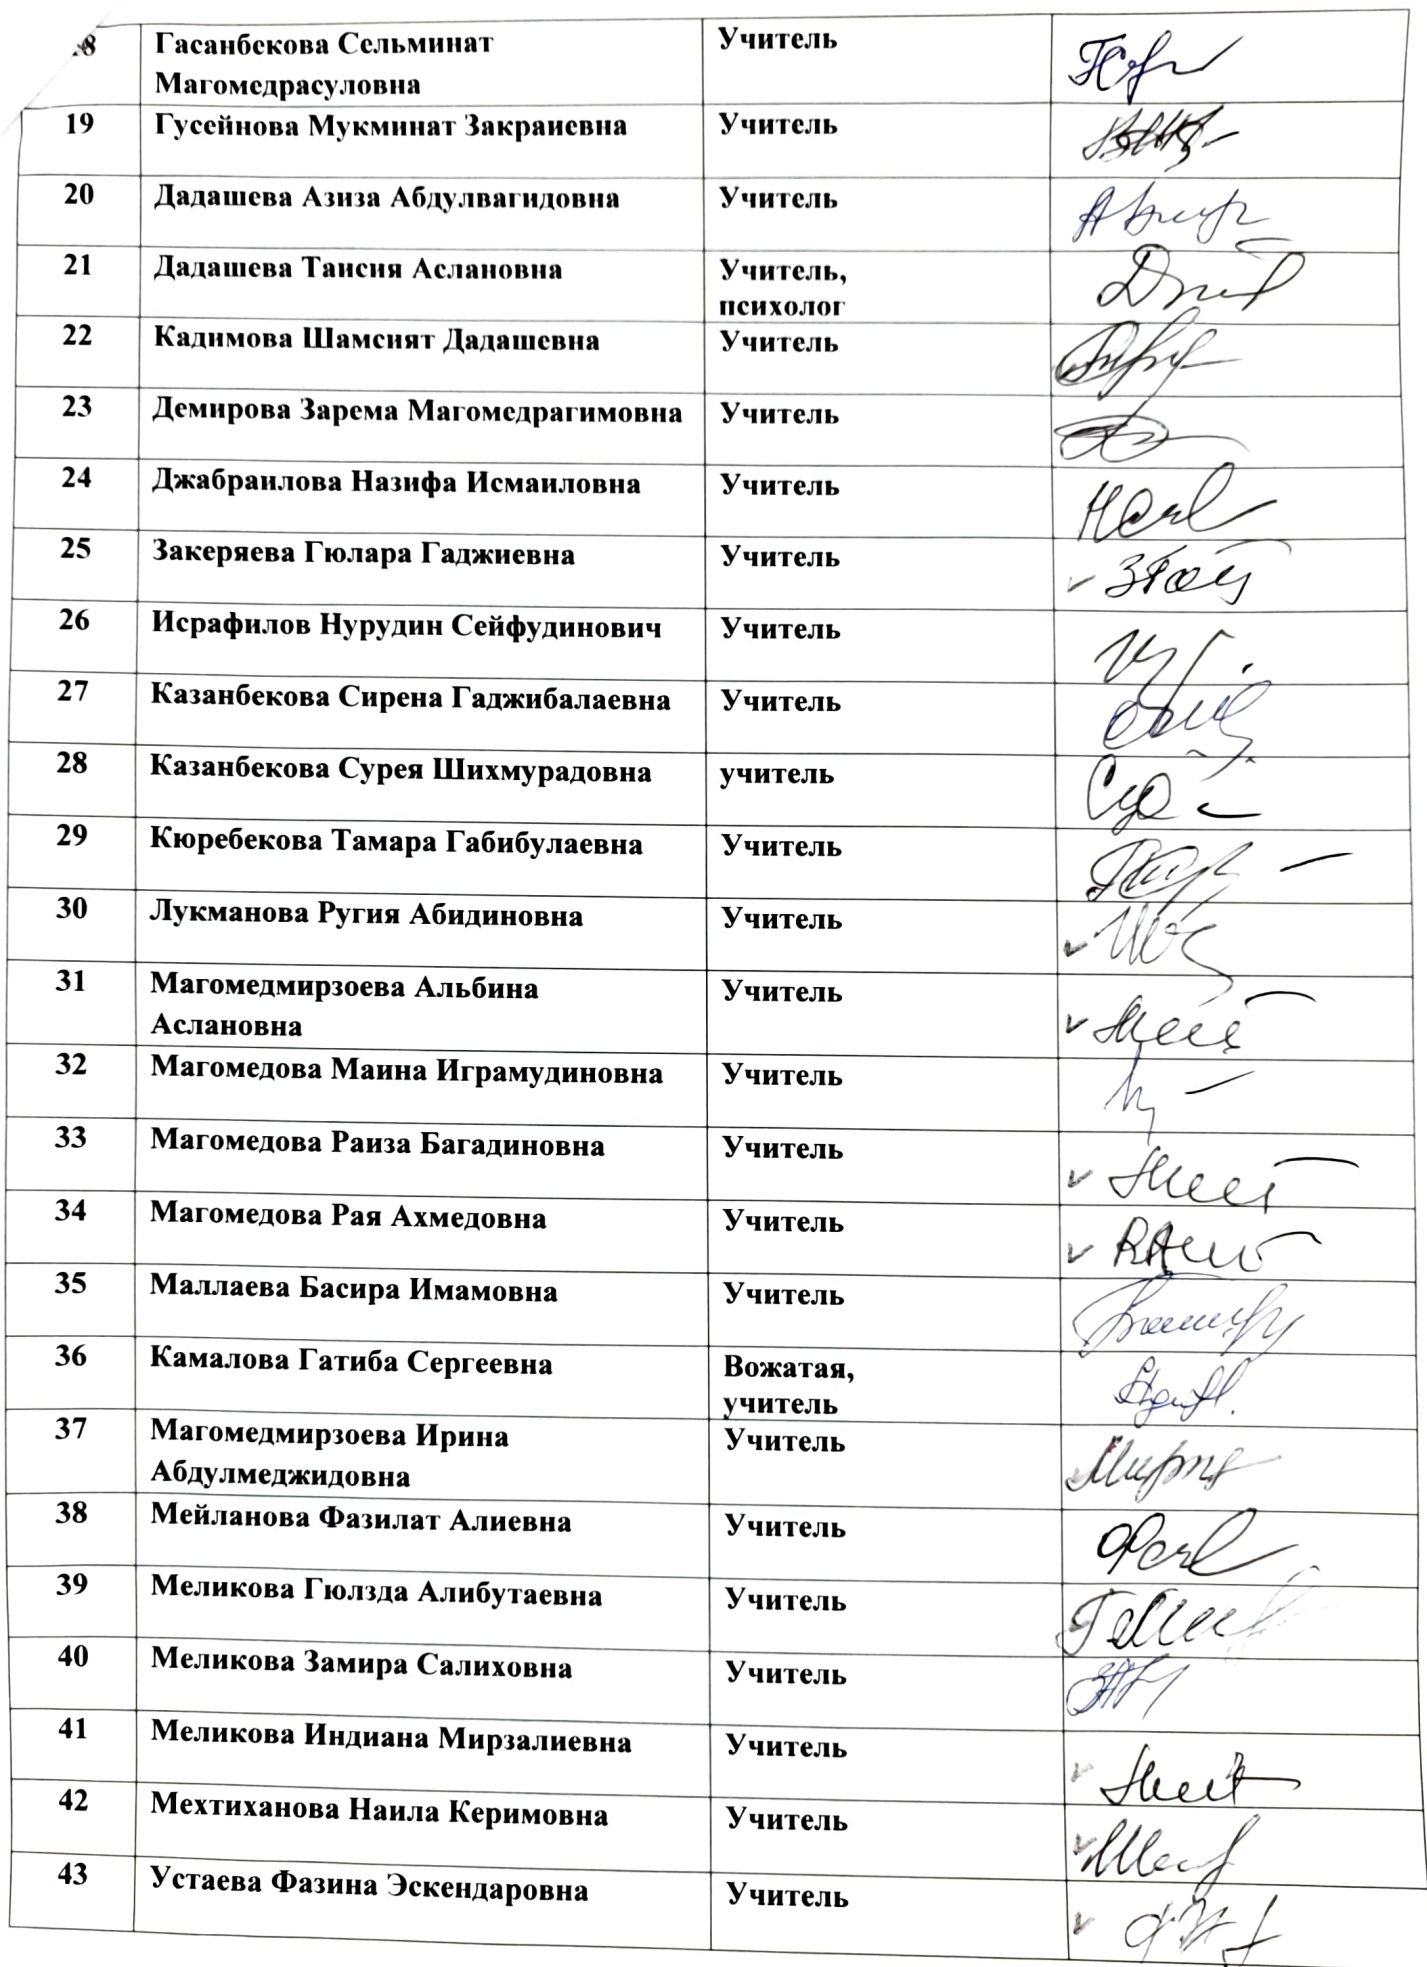 8 Гасанбекова Сельминат Учитель
Магомедрасуловна
19 Гусейнова Мукминат Закраиевна Учитель
20 Дадашева Азиза Абдулвагидовна Учитель
21 Дадашева Таисия Аслановна Учитель,
психолог
22 Кадимова Шамсият Дадашевна Учитель
23 Демирова Зарема Магомедрагимовна Учитель
24 Джабраилова Назифа Исмаиловна Учитель
25 Закеряева Гюлара Гаджиевна Учитель
26 Исрафилов Нурудин Сейфудинович Учитель
27 Казанбекова Сирена Гаджибалаевна Учитель
28 Казанбекова Сурея Шихмурадовна учитель
29 Кюребекова Тамара Габибулаевна Учитель
30 Лукманова Ругия Абидиновна Учитель
31 Магомедмирзоева Альбина Учитель
Аслановна
32 Магомедова Маина Играмудиновна Учитель
33 Магомедова Раиза Багадиновна Учитель
34 Магомедова Рая Ахмедовна Учитель
35 Маллаева Басира Имамовна Учитель
36 Камалова Гатиба Сергеевна Вожатая,
учитель
37 Магомедмирзоева Ирина Учитель
Абдулмеджидовна
38 Мейланова Фазилат Алиевна Учитель
39 Меликова Гюлзда Алибутаевна Учитель
40 Меликова Замира Салиховна Учитель
41 Меликова Индиана Мирзалиевна Учитель
42 Мехтиханова Наила Керимовна Учитель
43 Устаева Фазина Эскендаровна Учитель